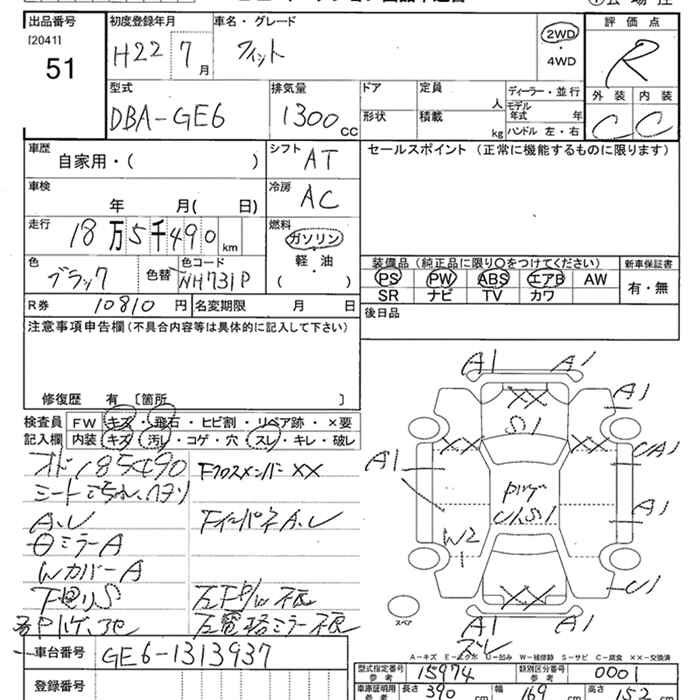 出品番号 初度登録年月 車名・グレード 評価点
[2041]
51
H22 7月 フィット 2WD・4WD R
型式 排気量 ドア 定員 人 ディーラー・並行 外装 内装
DBA-GE6 1300cc 形状 積載 kg モデル年式 年 C C
ハンドル 左・右
車歴 自家用・( ) シフト AT セールスポイント (正常に機能するものに限ります)
車検 年 月( 日) 冷房 AC
走行 18万5千490km 燃料 ガソリン・軽・油 ( )
色 ブラック 色替 色コード NH731P
装備品 (純正品に限り○をつけてください) 新車保証書
PS PW ABS エアB AW 有・無
SR ナビ TV カワ
R券 10810円 名変期限 月 日 後日品
注意事項申告欄 (不具合内容等は具体的に記入して下さい)
修復歴 有 〔箇所 〕
検査員記入欄 FW キズ・飛石・ヒビ割・リペア跡・×要
内装 キズ・汚レ・コゲ・穴・スレ・キレ・破レ
オドノ185490 Fクロスメンバー XX
A.U Fインパネ A.U
ミラーA
WカバーA
下廻りS
A1 A1
XX
A1
S1
XX XX
A1 UA1
A1
W2
U1
XX
A1 A1
スペア
A-キズ E-エクボ U-凹み W-補修跡 S-サビ C-腐食 XX-交換済
車台番号 GE6-1313937
型式指定番号 参考 15974 類別区分番号 参考 0001
登録番号
車庫証明用 参考 長さ 390cm 幅 169cm 高さ 152cm